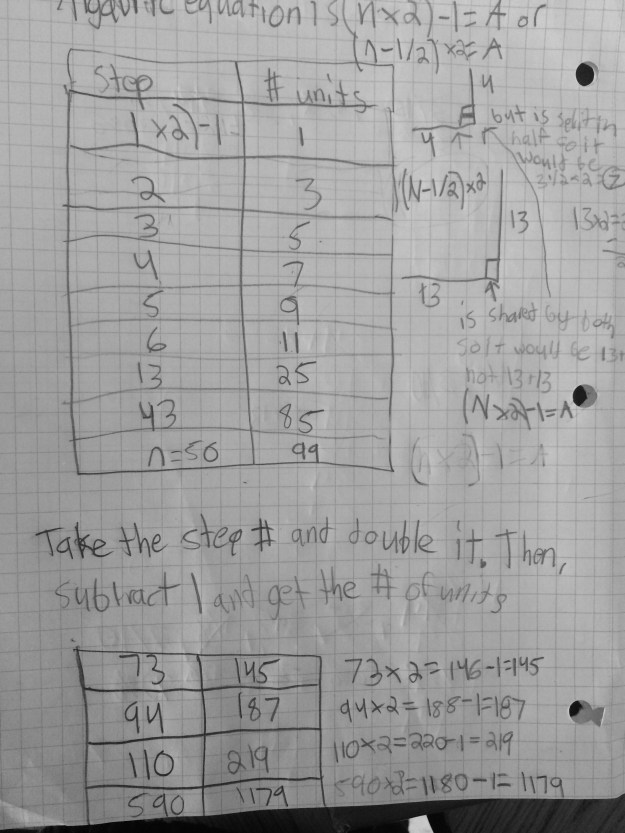 equation is (n×2)-1=A or
(n-1/2)×2=A
Step # units
1 ×2)-1 1
2 3
3 5
4 7
5 9
6 11
13 25
43 85
n=50 99
4
4
but is split in
half so it
would be
3 1/2×2=7
(N-1/2)×2
13
13×2=
13
is shared by both
so it would be 13+
not 13+13
(N×2)-1=A
(n×2)-1=A
Take the step # and double it. Then,
subtract 1 and get the # of units
73 145 73×2=146-1=145
94 187 94×2=188-1=187
110 219 110×2=220-1=219
590 1179 590×2=1180-1=1179